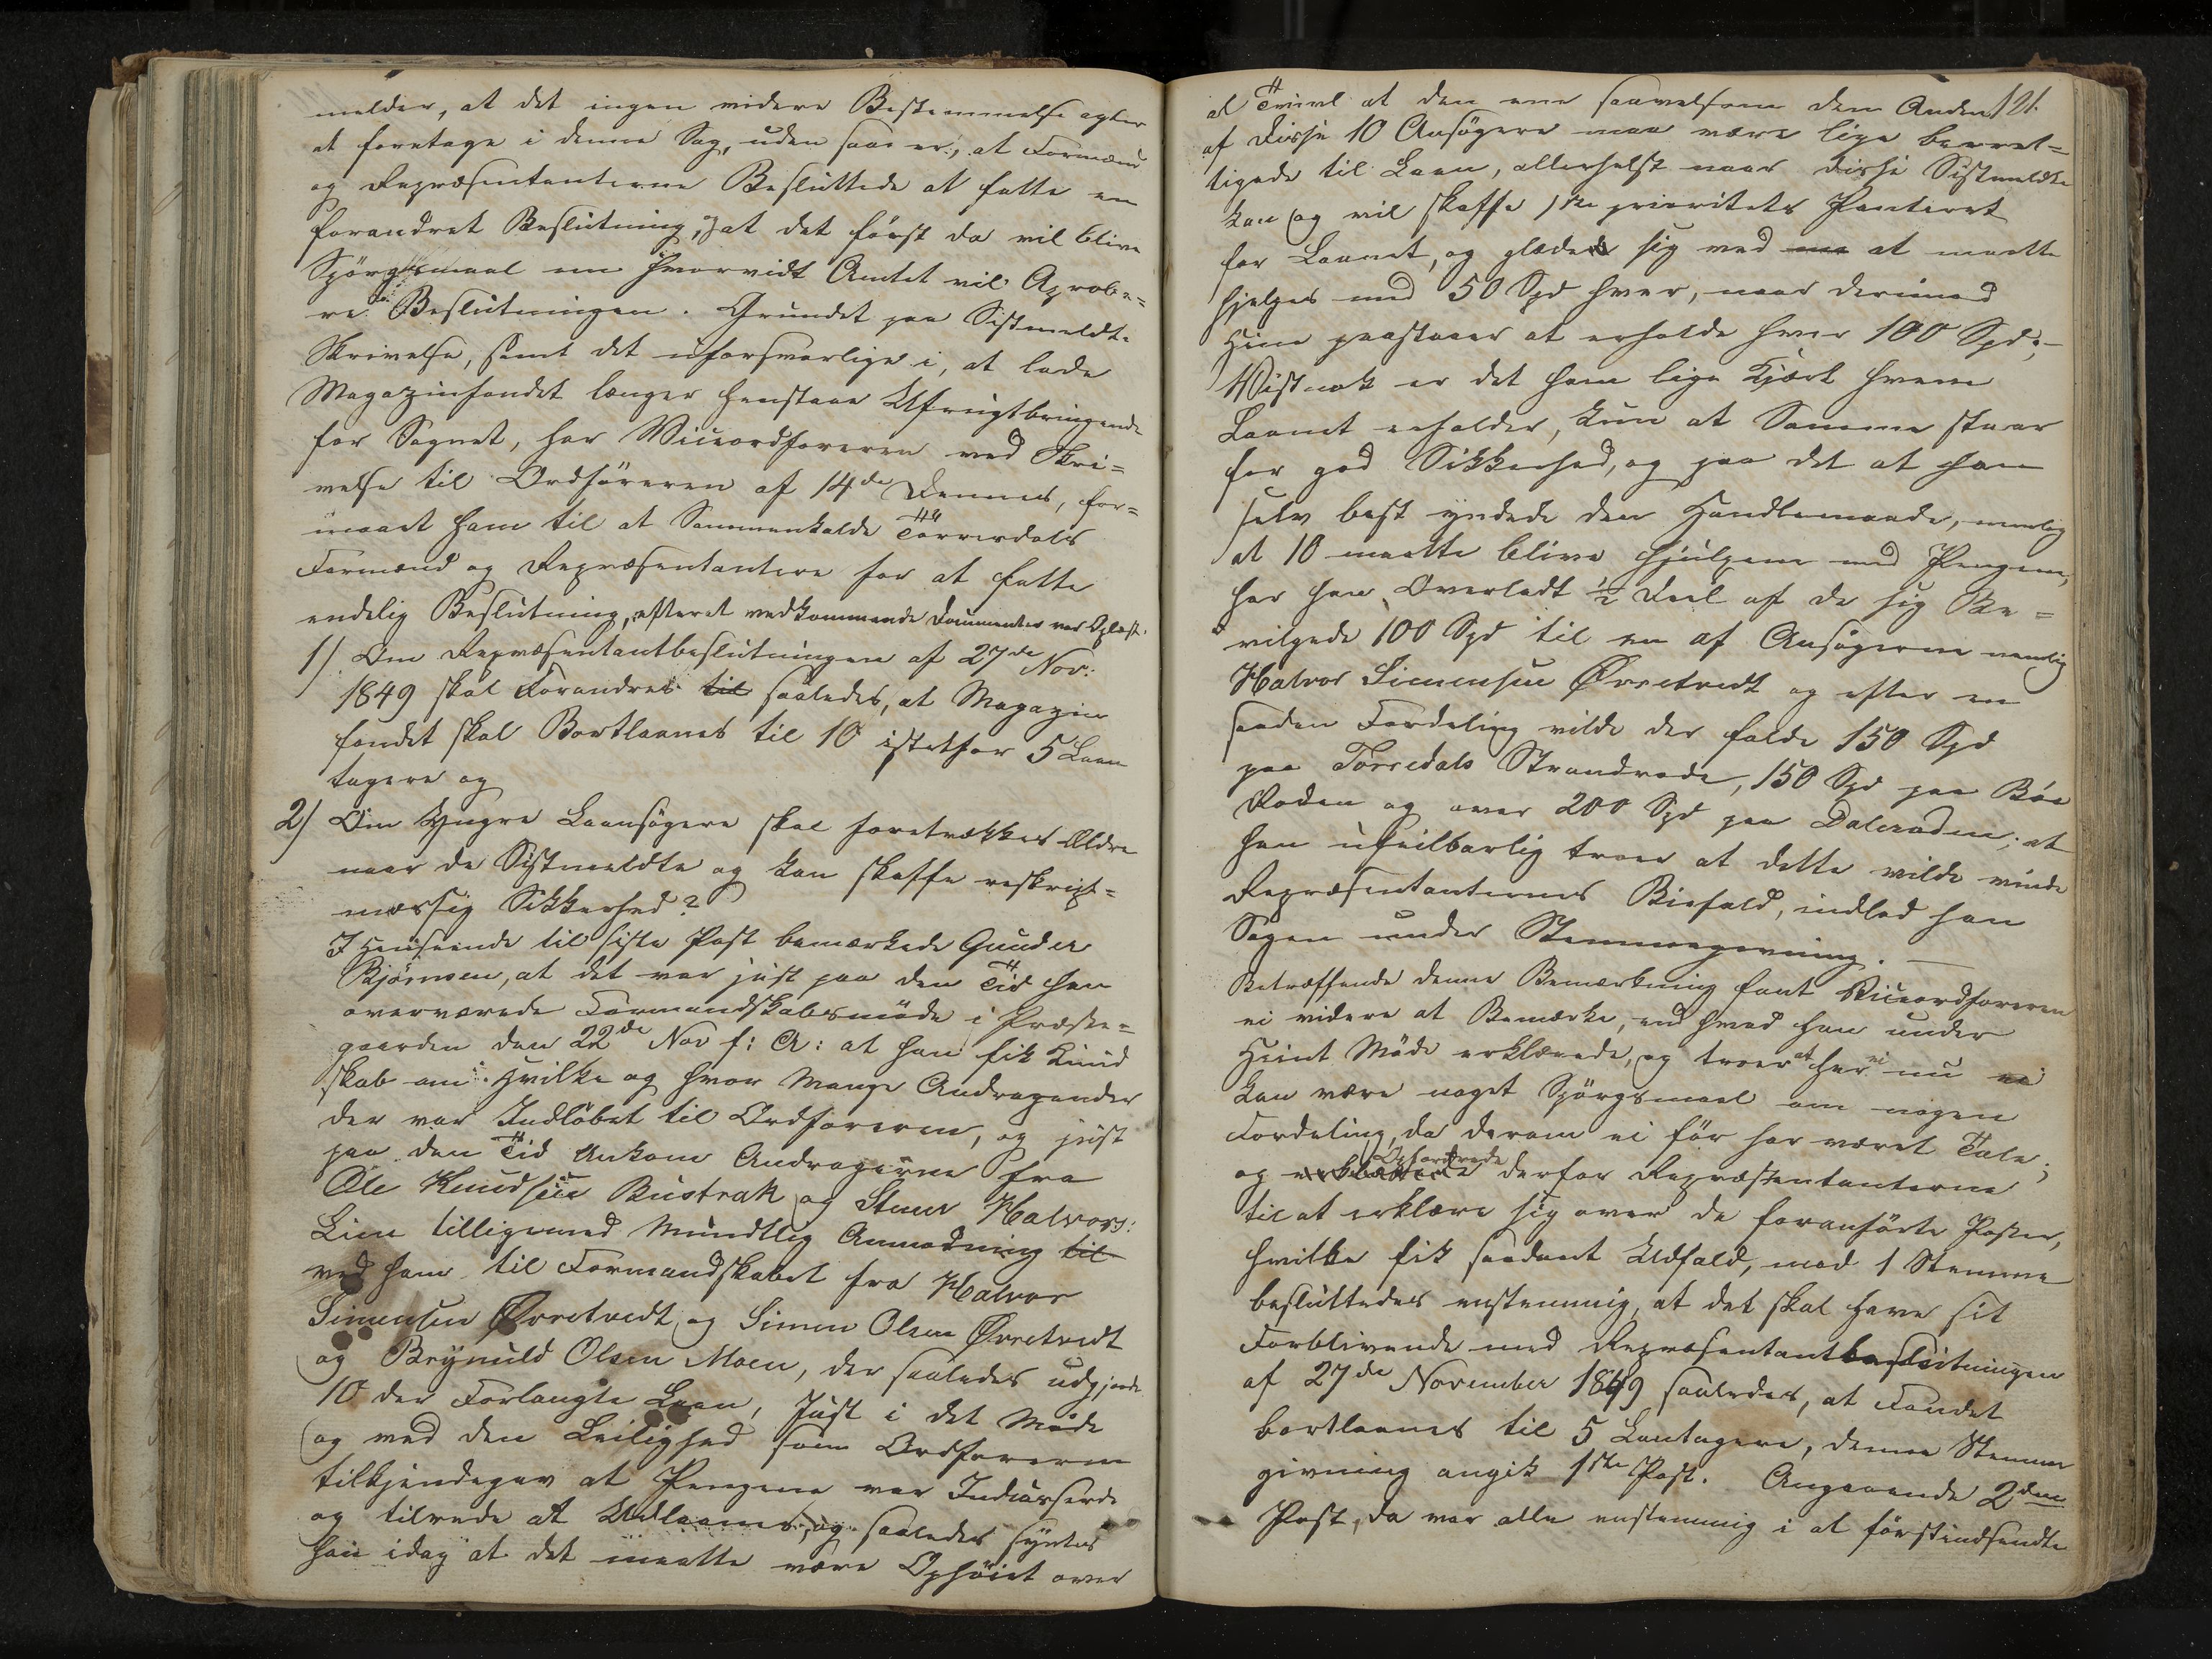 melder, at det ingen videre Bestemmelse agter
at foretage i denne Sag, uden saa er, at Formænd
og Repræsentanterne Besluttede at fatte en
forandret Beslutning, at det først da vil blive
Spørgsmaal om hvorvidt Amtet vil Aprobe=
re Beslutningen. Grundet paa Sistmeldte
Skrivelse, samt det uforsvarlige i, at lade
Magazinfondet længer henstaae Ufrugtbringende
for Sognet, har Viceordføreren ved Skri=
velse til Ordføreren af 14de Dennes, for=
maaet ham til at Sammenkalde Tørrisdals
Formænd og Repræsentantere for at fatte
endelig Beslutning, efterat vedkommende Documenter var Oplæst.
1) Om Repræsentantbeslutningen af 27de Nov:
1849 skal Forandres til saaledes, at Magazin
fondet skal Bortlaanes til 10 istetfor 5 Laan
tagere og
2) Om Yngre Laansøgere skal foretrækkes Ældre
naar de Sistmeldte og kan skaffe reskript=
mæssig Sikkerhed?
I Henseende til siste Post bemærkede Gunder
Bjørnsen, at det var just paa den Tid han
overværede Formandskabsmøde i Præste=
gaarden den 22de Nov f: A: at han fik Kund
skab om Hvilke og hvor Mange Andragender
der var Indløbet til Ordføreren, og just
paa den Tid Ankom Andragerne fra
Ole Knudsen Bustrak og Stener Halvors:
Lien tilligemed Mundtlig Anmodning til
ved ham til Formandskabet fra Halvor
Simensen Øvretvedt og Simen Olsen Øvretvedt
og Brynuld Olsen Moen, der saaledes udgjorde
10 der Forlangte Laan, Just i det Møde
og ved den Leilighed som Ordføreren
tilkjendegav at Pengene var Indcasserede
og tilrede at Udlaanes, og saaledes syntes
han idag at det maatte være Ophøiet over
121.
al Tvivl at den ene saavelsom den Anden
af disse 10 Ansøgere maa være lige beret=
tigede til Laan, allerhelst naar disse Sistmeldte
kan og vil skaffe 1ste prioritets Panteret
for Laanet, og glæder sig ved at maatte
hjelpes med 50 Spd hver, naar derimod
Hine paastaaer at erholde hver 100 Spd;
Vistnok er det ham lige Kjært hvem
Laanet erholder, kun at Samme staar
for god Sikkerhed, og paa det at han
selv best yndede den Handlemaade, nemlig
at 10 maatte blive hjulpene med Pengene,
har han Overladt ½ Deel af de sig Be=
vilgede 100 Spd til en af Ansøgerne nemlig
Halvor Simensen Øvretvedt og efter en
saadan Fordeling vilde der falde 150 Spd
paa Tørredals Strandrode, 150 Spd paa Bøe
Roden og over 200 Spd paa Daleroden; at
han ufeilbarlig troer at dette vilde vinde
Repræsentanternes Biefald, indlod han
Sagen under Stemmegivning. —
Betræffende denne Bemærkning fant Viceordføreren
ei videre at Bemærke, end hvad han under
Hiint Møde erklærede, og troer at her ei nu ei
kan være noget Spørgsmaal om nogen
Fordeling, da derom ei før har været Tale;
og erklærede Opfordrede derfor Repræsentanterne
til at erklære sig over de foranførte Poster,
hvilke fik saadant Udfald, mod 1 Stemme
besluttedes enstemmig, at det skal have sit
Forblivende med Repræsentantbeslutningen
af 27de November 1849 saaledes, at Fondet
bortlaanes til 5 Lantagere, denne Stemme
givning angik 1ste Post. Angaaende 2den
Post, da var alle enstemmig i at først indsendte